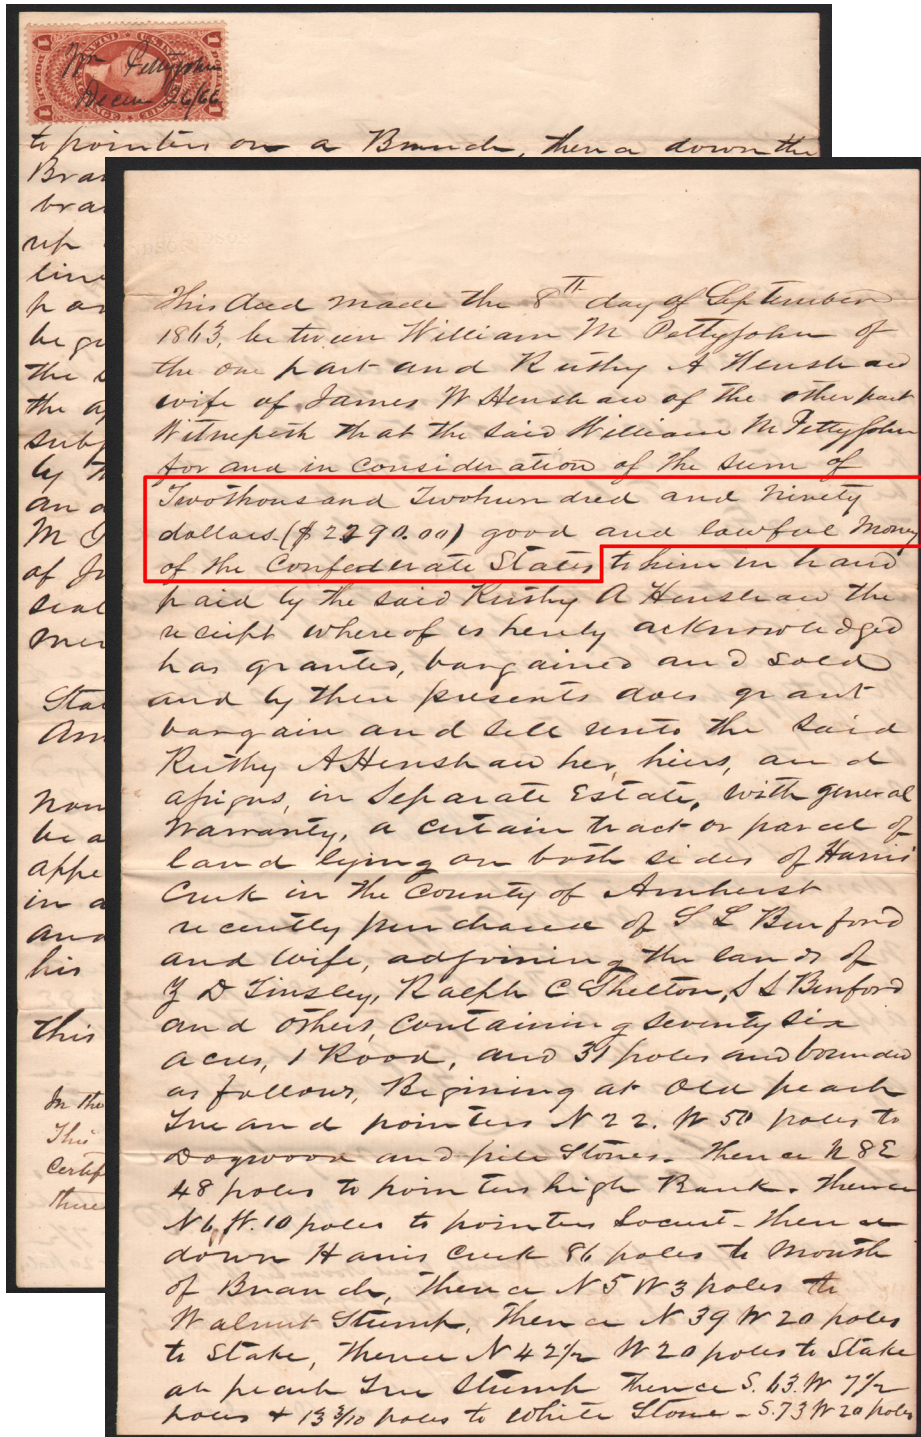 Wm Pettyjohn
Decem 26/66
to pointers on a Branch, thence down the
Bra
bra
up
line
be
the
the
sub
by
and
M
of
seal
Sta
Am
be a
appe
in a
and
his
this
In the
This
Certif
there
This deed made the 8th day of September
1863, between William M Pettyjohn of
the one part and Ruthy A Henshaw
wife of James W Henshaw of the other part
Witnesseth that the said William M Pettyjohn
for and in consideration of the sum of
Twothousand Twohundred and Ninety
dollars ($2290.00) good and lawful Money
of the Confederate States to him in hand
paid by the said Ruthy A Henshaw the
receipt whereof is hereby acknowledged
has granted, bargained and sold
and by these presents does grant
bargain and sell unto the said
Ruthy A Henshaw her, heirs, and
assigns, in Separate Estate, with general
Warranty, a certain tract or parcel of
land lying on both sides of Harris
Creek in the County of Amherst
recently purchased of S L Burford
and wife, adjoining the lands of
Z D Tinsley, Ralph C Shelton, S L Burford
and others, containing seventy six
acres, 1 Rood, and 31 poles and bounded
as follows, Begining at Old peach
Tree and pointers N 22. W 50 poles to
Dogwood and pile Stones. thence N 8 E
48 poles to pointers high Bank. thence
N 6 ft. 10 poles to pointers Locust - thence
down Harris Creek 86 poles to Mouth
of Branch, thence N 5 W 3 poles to
Walnut Stump, Thence N 39 W 20 poles
to Stake, thence N 42½ W 20 poles to Stake
at peach Tree Stump thence S. 63. W 7½
poles + 13 3/10 poles to White Stone - S. 73 W 20 poles